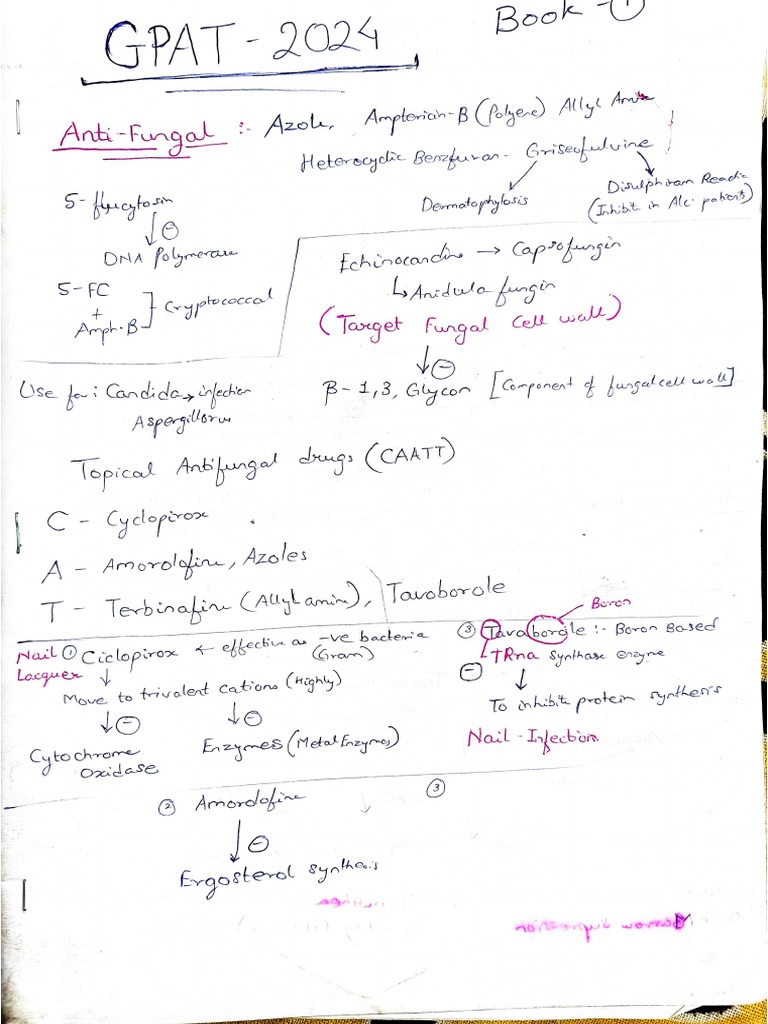 GPAT - 2024
Book - 1
Anti-Fungal :- Azole, Amptorian-B (Polyene) Allyl Amine
Heterocyclic Benzfuran - Griseofulvine
Dermatophylosis
Disulphiram Reactio
(Inhibit in Alc. patients)
5-flycytosin
⊖
DNA Polymerase
5-FC
+
Amph-B
Cryptococcal
Echinocardins → Caprofungin
Anidula fungin
(Target Fungal Cell wall)
⊖
β-1,3, Glycon [Component of fungal cell wall]
Use for: Candida → infection
Aspergillorus
Topical Antifungal drugs (CAATT)
C - Cyclopirox
A - Amorolofine, Azoles
T - Terbinafine (Allyl amine), Tavoborole
Nail Lacquer
① Ciclopirox ← effective as -ve bacteria
(Gram)
Move to trivalent cations (Highly)
⊖ ⊖
Cytochrome Oxidase
Enzymes (Metal Enzymes)
Boron
③ Tavaborole :- Boron Based
⊖ TRna synthase enzyme
To inhibit protein synthesis
Nail - Infection
② Amorolofine
③
⊖
Ergosterol synthesis